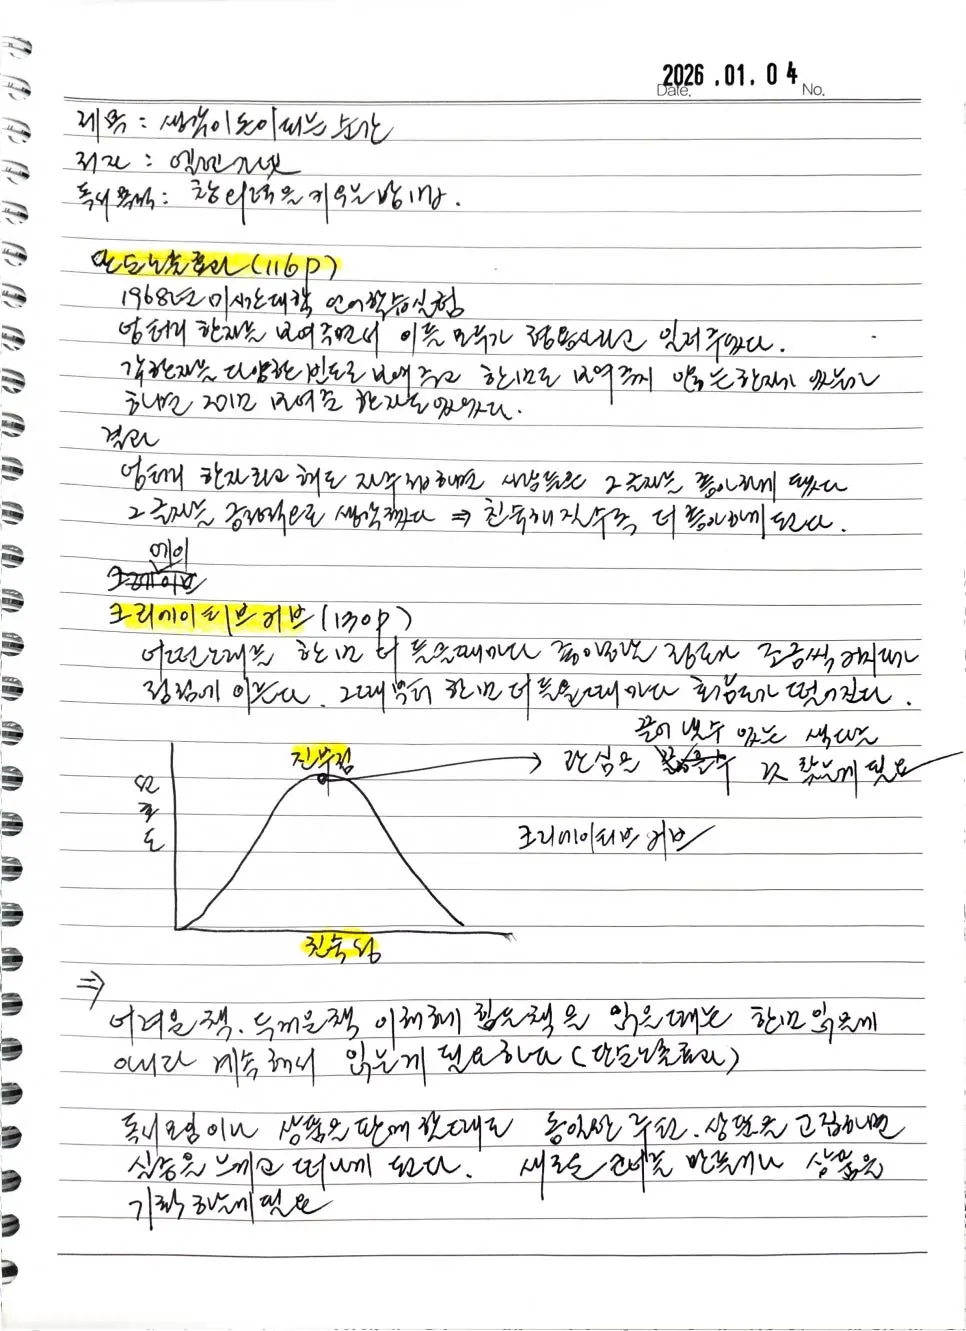 2026.01.04
Date. No.
제목 : 생각이 돈이 되는 순간
저자 : 앨런 가넷
독서목적 : 창의력을 키우는 방법.
단순노출효과(116p)
1968년 미시간대학 언어학습실험
엉터리 한자를 보여주면서 이들 모두가 형용사라고 알려주었다.
각 한자를 다양한 빈도로 보여주고 한번도 보여주지 않는 한자가 있는가
하면 20번 보여준 한자도 있었다.
결과
엉터리 한자라고 해도 자주 접하면 사람들은 그 글자를 좋아하게 됐다
그 글자를 긍정적으로 생각했다 ⇒ 친숙해질수록 더 좋아하게 된다.
에이
크리에이티브 커브(130p)
어떤 노래를 한번 더 들을때마다 좋아하는 정도가 조금씩 커지다가
정점에 이른다. 그때부터 한번 더 들을때마다 호감도가 떨어진다.
끌어 낼 수 있는 색다른
진부점 → 관심을 것 찾는게 필요
선호도
크리에이티브 커브
친숙성
⇒
어려운 책. 두꺼운책 이해하기 힘든책을 읽을때는 한번 읽은게
아니라 계속해서 읽는게 필요하다 (단순노출효과)
독서모임이나 상품을 판매할때도 동일한 주제. 상품을 고집하면
싫증을 느끼고 떠나게 된다. 새로운 주제를 만들거나 상품을
기획하는게 필요